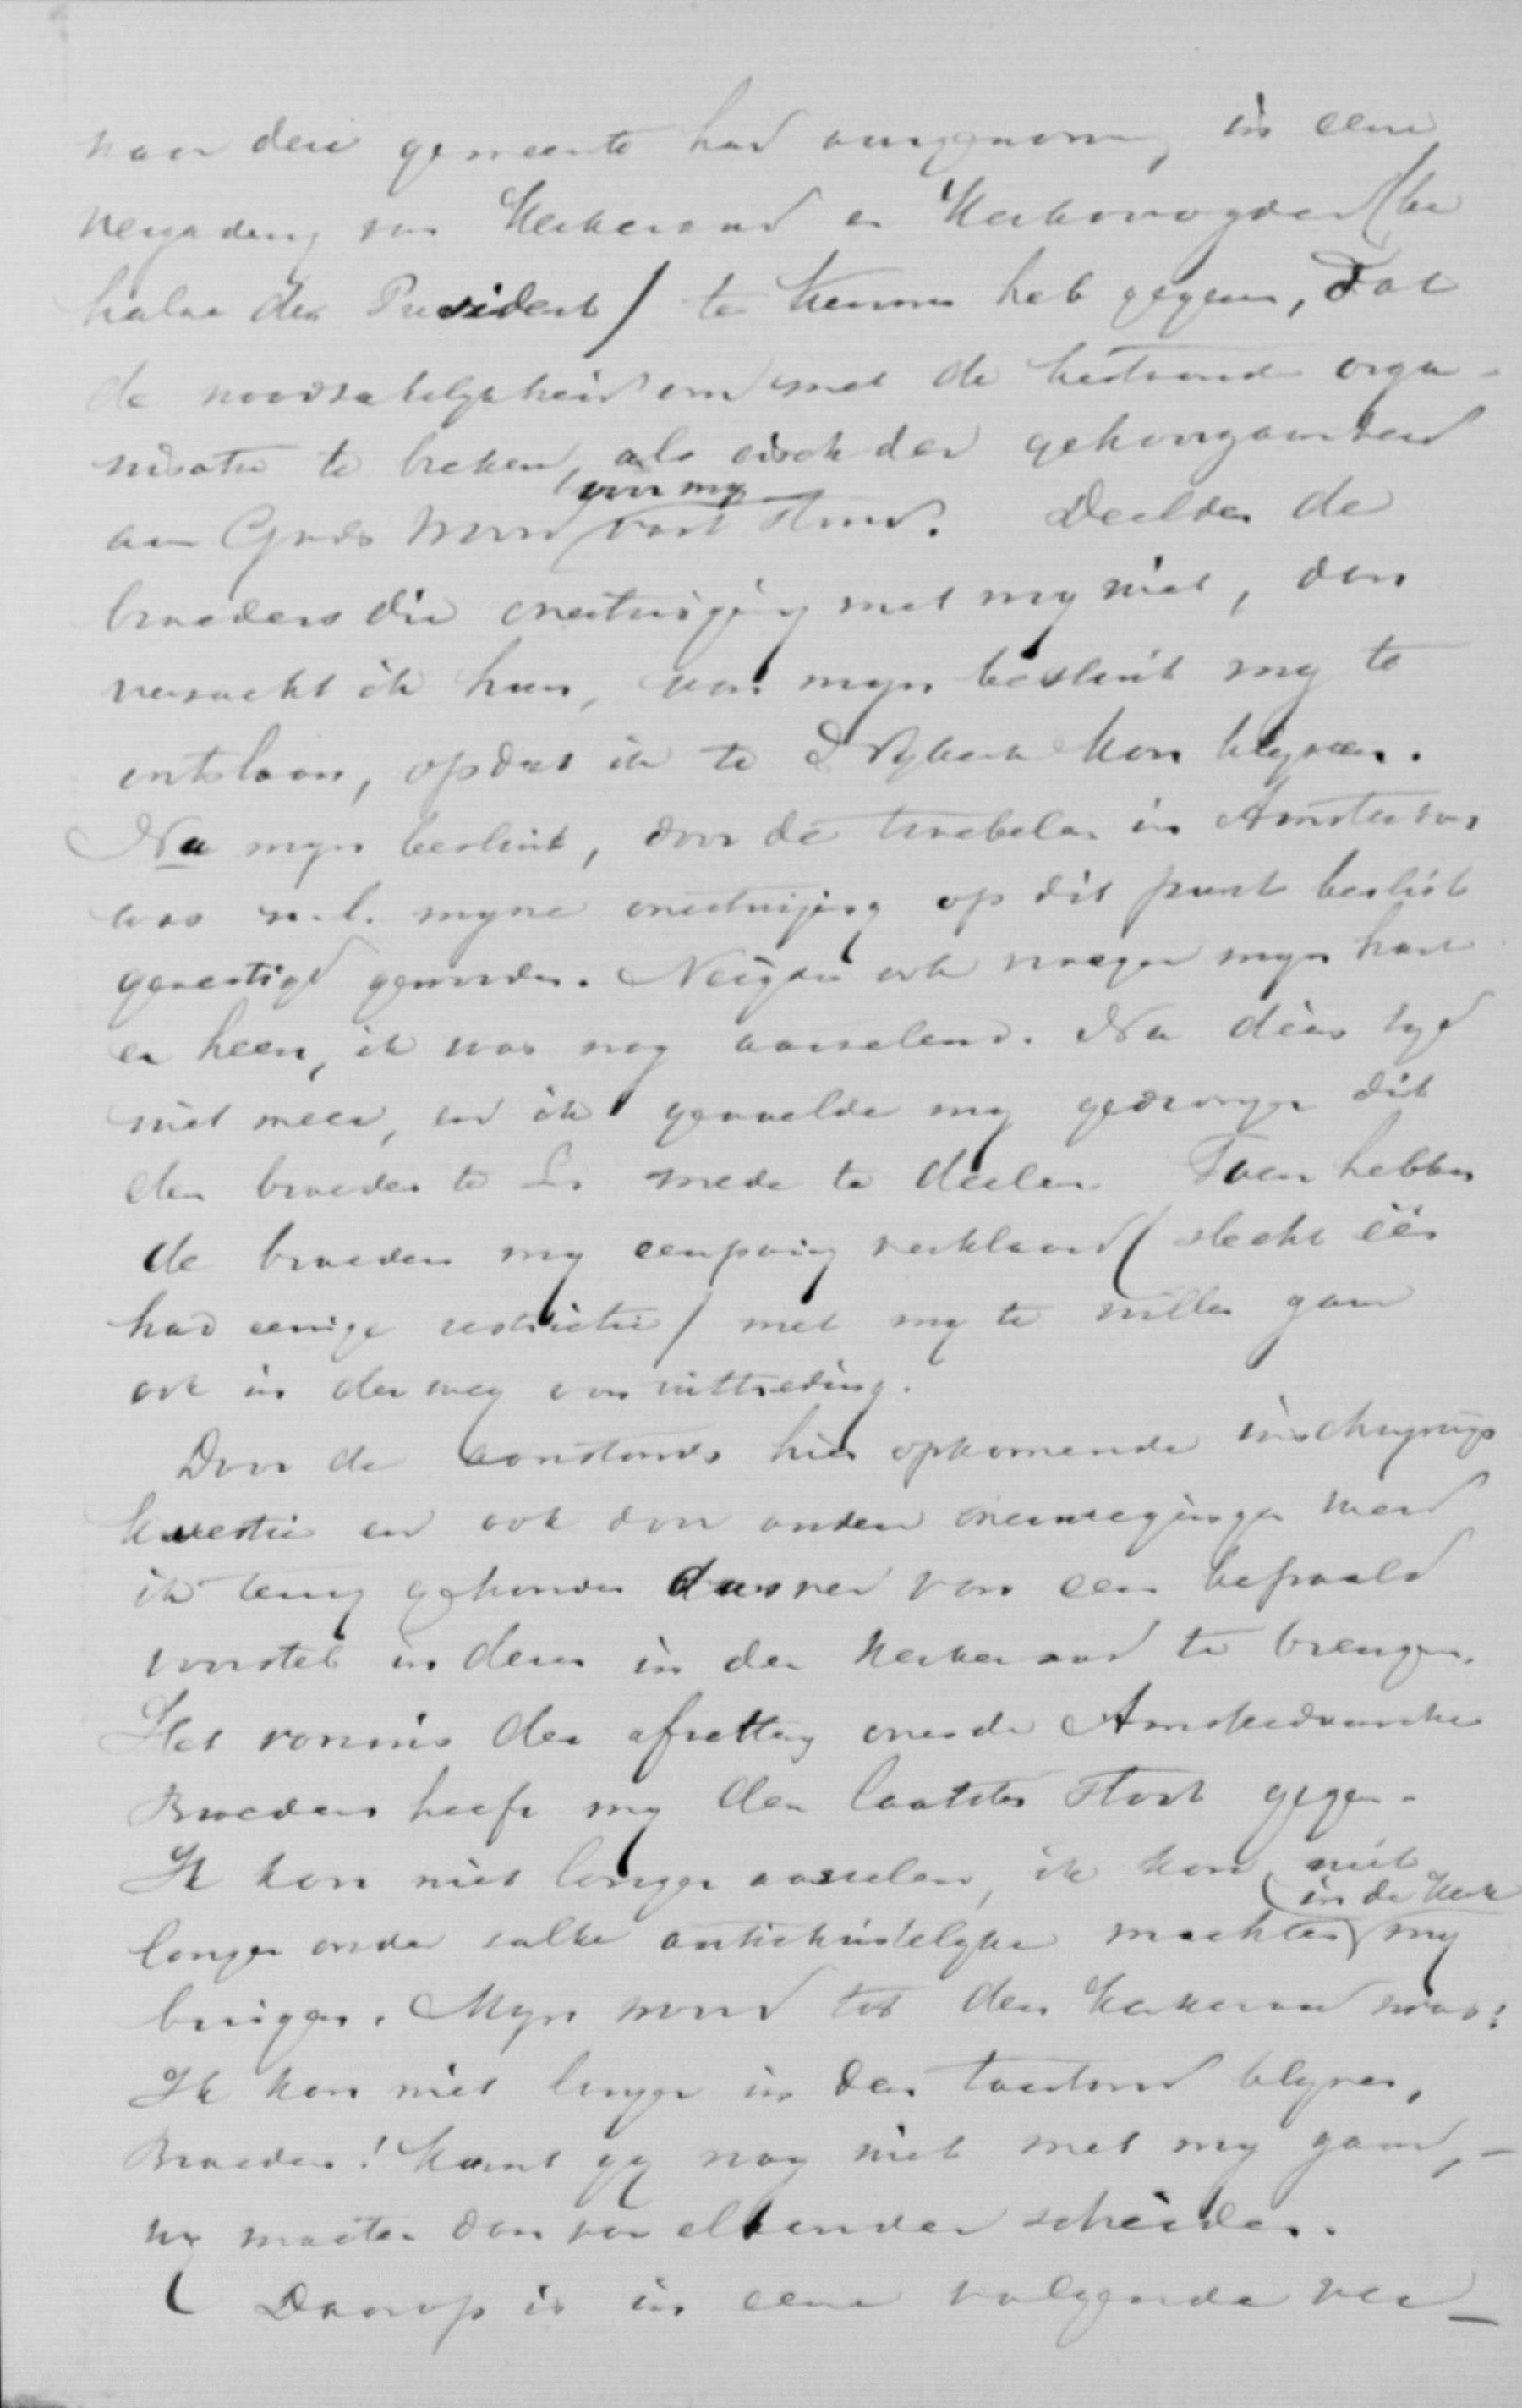 naar deze gemeente had aangenomen, in eene
vergadering van Kerkeraad en Kerkvoogden (be
halve den President) te kennen heb gegeven, dat
de noodzakelykheid om met de bestaande orga-
nisatie te breken, als eisch der gehoorzaamheid
aan Gods Woord (voor my vast stond. Deelden de
broeders die overtuiging met my niet, dan
verzocht ik hun, van myn besluit my te
ontslaan, opdat ik te kon blyven.
Na myn besluit, door de troebelen in Amsterdam
was n.l. myne overtuiging op dit punt beslist
gevestigd geworden. Neigde ook vroeger myn hart
er heen, ik was nog aarzelend. Na dien tyd
niet meer, en ik gevoelde my gedrongen dit
den broeders te L. mede te deelen. Toen hebben
de broeders my eenparig verklaard (slechts één
had eenige restrictie) met my te willen gaan
ook in den weg van uittreding.
Door de aanstonds hier opkomende inschryvings
kwestie en ook door andere overwegingen werd
ik terug gehouden daarvan een bepaald
voorstel in dezen in den Kerkeraad te brengen.
Het vonnis der afzetting over de Amsterdamsche
Broeders heeft my den laatsten stoot gegeven.
Ik kon niet langer aarzelen, ik kon niet
langer onder zulke antichristelyke machten (in de Kerk my
buigen. Myn woord tot den Kerkeraad was:
Ik kan niet langer in dezen toestand blyven,
Broeders! Kunt gy nog niet met my gaan, -
wy moeten dan van elkander scheiden.
Daarop is in eene volgende ver-